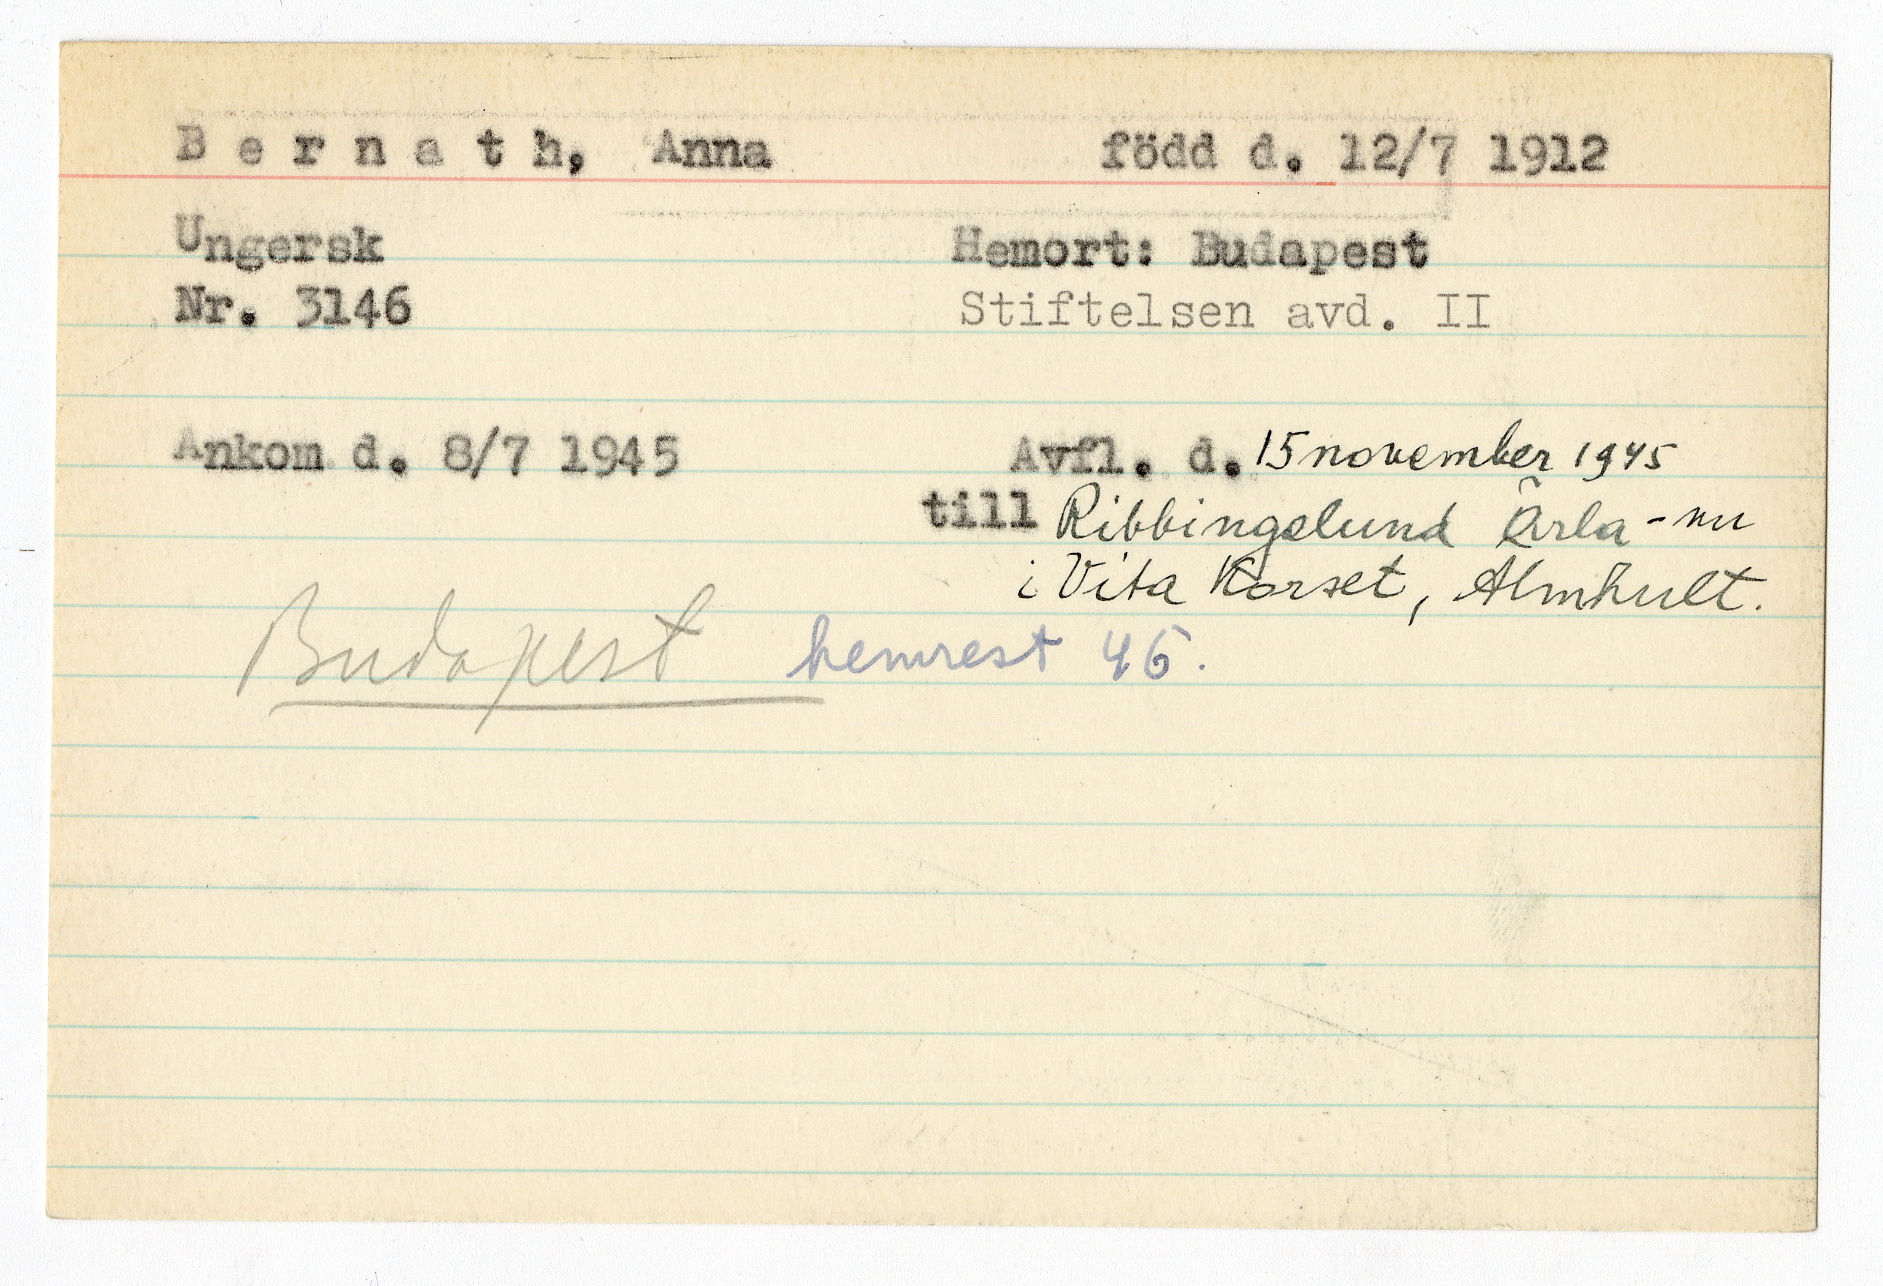 Bernath, Anna född d. 12/7 1912
Ungersk Hemort: Budapest
Nr. 3146 Stiftelsen avd. II
Ankom d. 8/7 1945 Avfl. d. 15 november 1945
till Ribbingelund Ärla - nu
i Vita Korset, Älmhult.
Budapest hemrest 46.